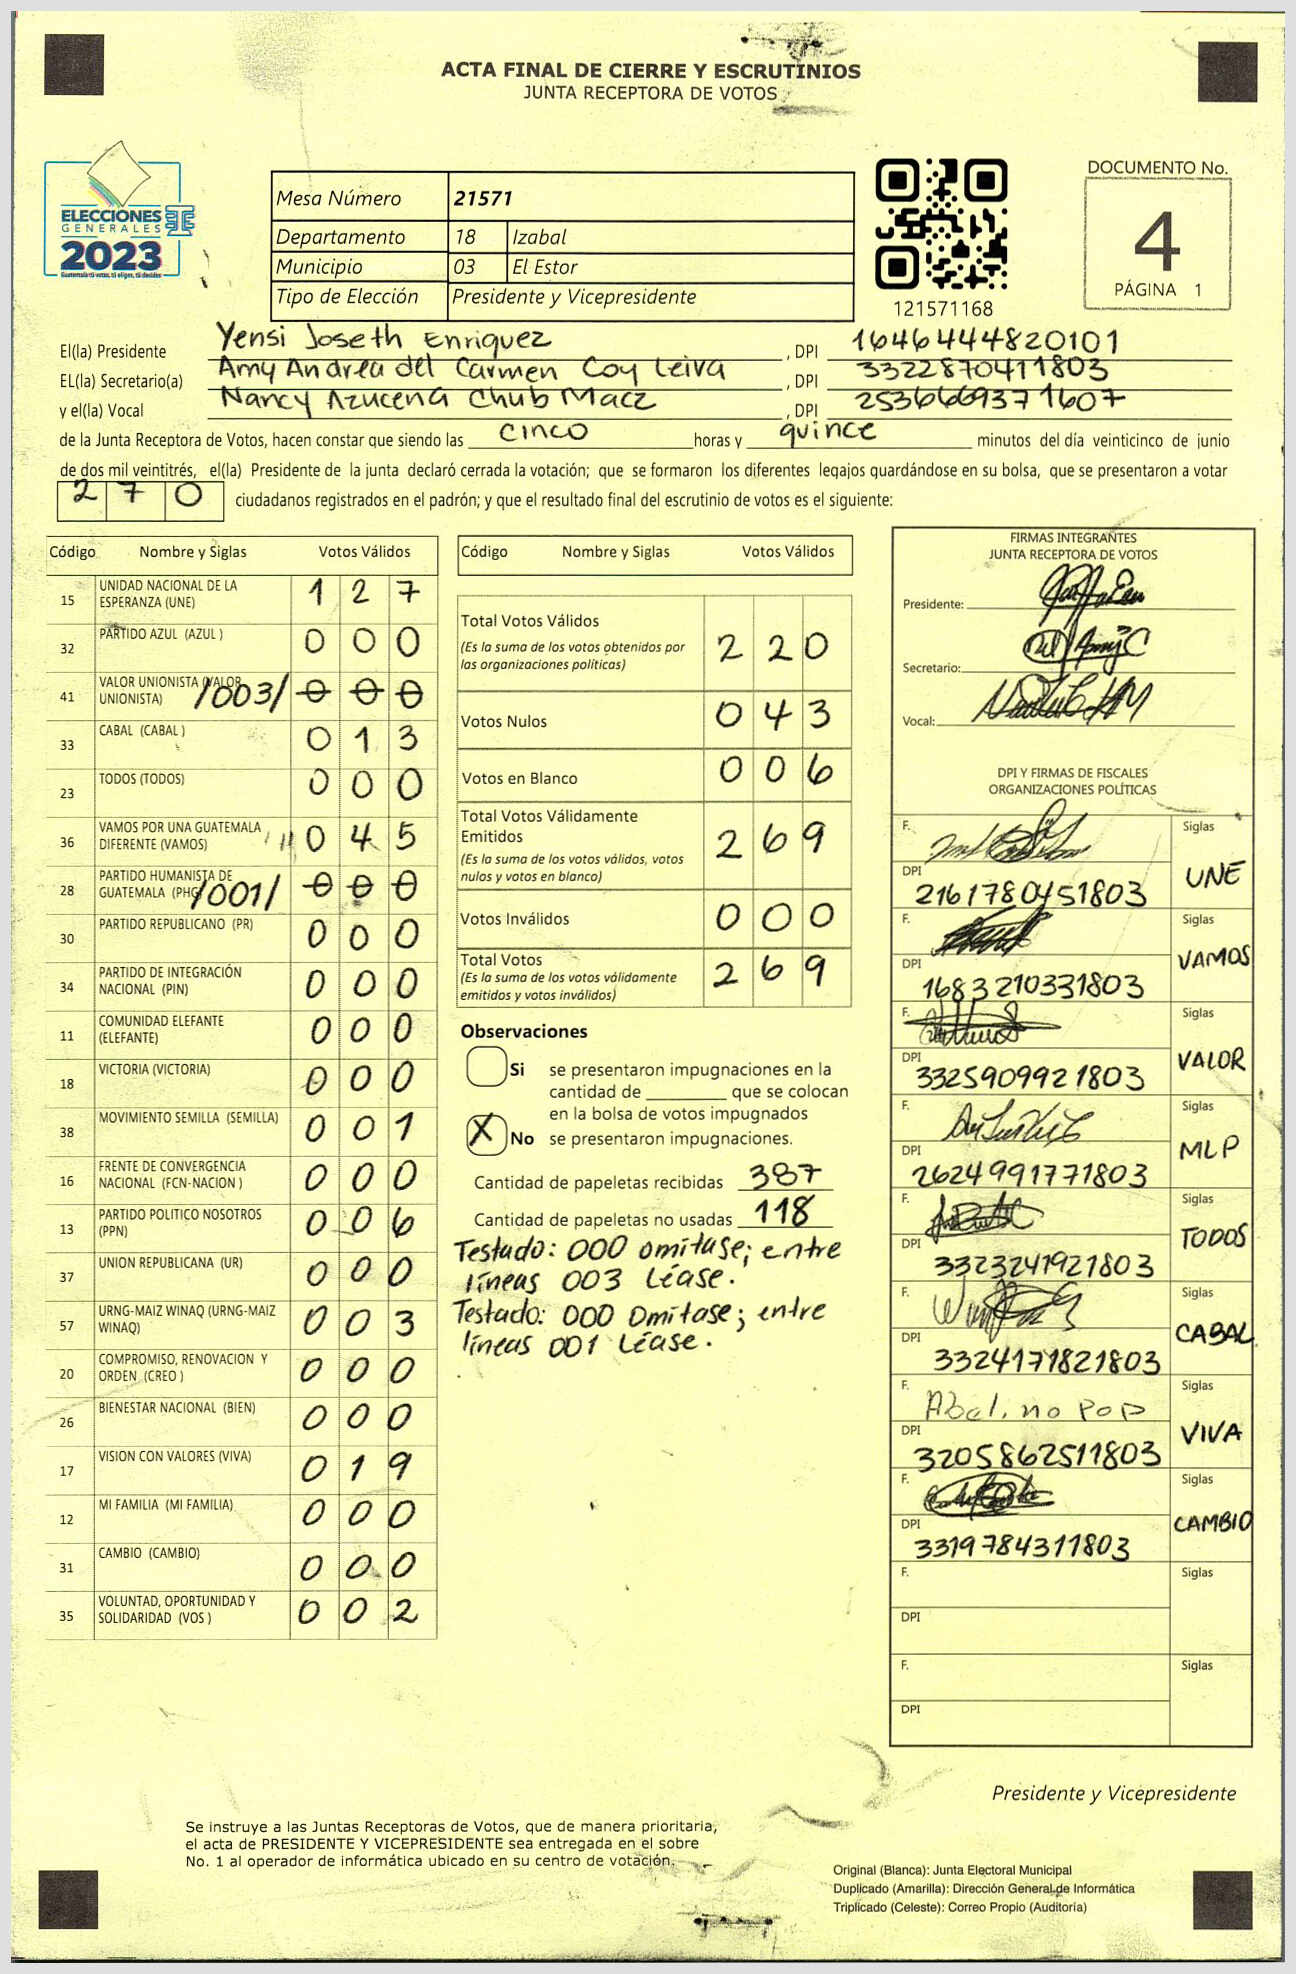 ACTA FINAL DE CIERRE Y ESCRUTINIOS
JUNTA RECEPTORA DE VOTOS
ELECCIONES
GENERALES
2023
Guatemala tú votas, tú eliges, tú decides
Mesa Número 21571
Departamento 18 Izabal
Municipio 03 El Estor
Tipo de Elección Presidente y Vicepresidente
121571168
DOCUMENTO No.
4
PÁGINA 1
El(la) Presidente Yensi Joseth Enriquez , DPI 1646444820101
EL(la) Secretario(a) Amy Andrea del Carmen Coy Leiva , DPI 3322870411803
y el(la) Vocal Nancy Azucena Chub Macz , DPI 2536669371607
de la Junta Receptora de Votos, hacen constar que siendo las cinco horas y quince minutos del día veinticinco de junio
de dos mil veintitrés, el(la) Presidente de la junta declaró cerrada la votación; que se formaron los diferentes legajos guardándose en su bolsa, que se presentaron a votar
270 ciudadanos registrados en el padrón; y que el resultado final del escrutinio de votos es el siguiente:
Código Nombre y Siglas Votos Válidos
15 UNIDAD NACIONAL DE LA ESPERANZA (UNE) 1 2 7
32 PARTIDO AZUL (AZUL ) 0 0 0
41 VALOR UNIONISTA (VALOR UNIONISTA) /003/ 0 0 0
33 CABAL (CABAL ) 0 1 3
23 TODOS (TODOS) 0 0 0
36 VAMOS POR UNA GUATEMALA DIFERENTE (VAMOS) 0 4 5
28 PARTIDO HUMANISTA DE GUATEMALA (PHG) /001/ 0 0 0
30 PARTIDO REPUBLICANO (PR) 0 0 0
34 PARTIDO DE INTEGRACIÓN NACIONAL (PIN) 0 0 0
11 COMUNIDAD ELEFANTE (ELEFANTE) 0 0 0
18 VICTORIA (VICTORIA) 0 0 0
38 MOVIMIENTO SEMILLA (SEMILLA) 0 0 1
16 FRENTE DE CONVERGENCIA NACIONAL (FCN-NACION ) 0 0 0
13 PARTIDO POLITICO NOSOTROS (PPN) 0 0 6
37 UNION REPUBLICANA (UR) 0 0 0
57 URNG-MAIZ WINAQ (URNG-MAIZ WINAQ) 0 0 3
20 COMPROMISO, RENOVACION Y ORDEN (CREO ) 0 0 0
26 BIENESTAR NACIONAL (BIEN) 0 0 0
17 VISION CON VALORES (VIVA) 0 1 9
12 MI FAMILIA (MI FAMILIA) 0 0 0
31 CAMBIO (CAMBIO) 0 0 0
35 VOLUNTAD, OPORTUNIDAD Y SOLIDARIDAD (VOS ) 0 0 2
Código Nombre y Siglas Votos Válidos
Total Votos Válidos 2 2 0
(Es la suma de los votos obtenidos por
las organizaciones políticas)
Votos Nulos 0 4 3
Votos en Blanco 0 0 6
Total Votos Válidamente
Emitidos 2 6 9
(Es la suma de los votos válidos, votos
nulos y votos en blanco)
Votos Inválidos 0 0 0
Total Votos 2 6 9
(Es la suma de los votos válidamente
emitidos y votos inválidos)
Observaciones
Si se presentaron impugnaciones en la
cantidad de ________ que se colocan
en la bolsa de votos impugnados
X No se presentaron impugnaciones.
Cantidad de papeletas recibidas 387
Cantidad de papeletas no usadas 118
Testado: 000 omitase; entre
líneas 003 Léase.
Testado: 000 Omítase; entre
líneas 001 Léase.
FIRMAS INTEGRANTES
JUNTA RECEPTORA DE VOTOS
Presidente:
Secretario:
Vocal:
DPI Y FIRMAS DE FISCALES
ORGANIZACIONES POLÍTICAS
F. Siglas
DPI 2161780451803 UNE
F. Siglas
DPI 1683210331803 VAMOS
F. Siglas
DPI 3325909921803 VALOR
F. Siglas
DPI 2624991771803 MLP
F. Siglas
DPI 3323241921803 TODOS
F. Siglas
DPI 3324171821803 CABAL
F. Abelino Pop Siglas
DPI 3205862511803 VIVA
F. Siglas
DPI 3319784311803 CAMBIO
F. Siglas
DPI
F. Siglas
DPI
Presidente y Vicepresidente
Se instruye a las Juntas Receptoras de Votos, que de manera prioritaria,
el acta de PRESIDENTE Y VICEPRESIDENTE sea entregada en el sobre
No. 1 al operador de informática ubicado en su centro de votación.
Original (Blanca): Junta Electoral Municipal
Duplicado (Amarilla): Dirección General de Informática
Triplicado (Celeste): Correo Propio (Auditoría)